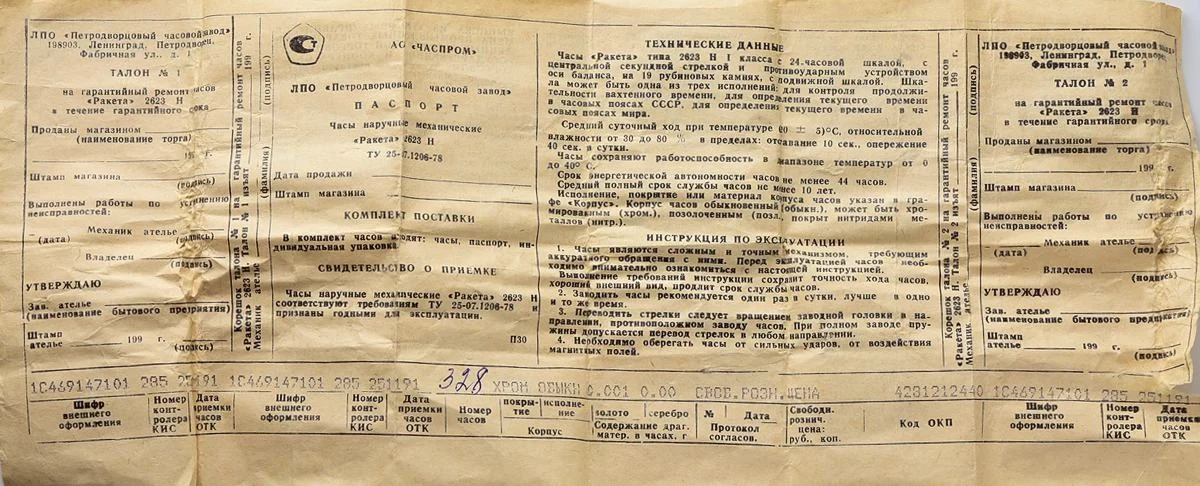 ЛПО «Петродворцовый часовой завод»
198903, Ленинград, Петродворец,
Фабричная ул., д. 1
ТАЛОН № 1
на гарантийный ремонт часов
«Ракета» 2623 Н
в течение гарантийного срока
Проданы магазином
(наименование торга)
199 г.
Штамп магазина
(подпись)
Выполнены работы по устранению
неисправностей:
Механик ателье
(дата) (подпись)
Владелец
(подпись)
УТВЕРЖДАЮ
Зав. ателье
(наименование бытового предприятия)
Штамп
ателье 199 г.
(подпись)
Корешок талона № 1 на гарантийный ремонт часов
«Ракета» 2623 Н. Талон № 1 изъят 199 г.
Механик ателье
(фамилия) (подпись)
АО «ЧАСПРОМ»
ЛПО «Петродворцовый часовой завод»
ПАСПОРТ
Часы наручные механические
«Ракета» 2623 Н
ТУ 25-07.1206-78
Дата продажи
Штамп магазина
КОМПЛЕКТ ПОСТАВКИ
В комплект часов входят: часы, паспорт, ин-
дивидуальная упаковка
СВИДЕТЕЛЬСТВО О ПРИЕМКЕ
Часы наручные механические «Ракета» 2623 Н
соответствуют требованиям ТУ 25-07.1206-78 и
признаны годными для эксплуатации.
П30
ТЕХНИЧЕСКИЕ ДАННЫЕ
Часы «Ракета» типа 2623 Н I класса с 24-часовой шкалой, с
центральной секундной стрелкой и противоударным устройством
оси баланса, на 19 рубиновых камнях, с подвижной шкалой. Шка-
ла может быть одна из трех исполнений: для контроля продолжи-
тельности вахтенного времени, для определения текущего времени
в часовых поясах СССР, для определения текущего времени в ча-
совых поясах мира.
Средний суточный ход при температуре (20 ± 5)°С, относительной
влажности от 30 до 80 % в пределах: отставание 10 сек., опережение
40 сек. в сутки.
Часы сохраняют работоспособность в диапазоне температур от 0
до 40° С.
Срок энергетической автономности часов не менее 44 часов.
Средний полный срок службы часов не менее 10 лет.
Исполнение, покрытие или материал корпуса часов указан в гра-
фе «Корпус». Корпус часов обыкновенный (обыкн.), может быть хро-
мированным (хром.), позолоченным (позл.), покрыт нитридами ме-
таллов (нитр.).
ИНСТРУКЦИЯ ПО ЭКСПЛУАТАЦИИ
1. Часы являются сложным и точным механизмом, требующим
аккуратного обращения с ними. Перед эксплуатацией часов необ-
ходимо внимательно ознакомиться с настоящей инструкцией.
Выполнение требований инструкции сохранит точность хода часов,
хороший внешний вид, продлит срок службы часов.
2. Заводить часы рекомендуется один раз в сутки, лучше в одно
и то же время.
3. Переводить стрелки следует вращением заводной головки в на-
правлении, противоположном заводу часов. При полном заводе пру-
жины допускается перевод стрелок в любом направлении.
4. Необходимо оберегать часы от сильных ударов, от воздействия
магнитных полей.
Корешок талона № 2 на гарантийный ремонт часов
«Ракета» 2623 Н. Талон № 2 изъят 199 г.
Механик ателье
(фамилия) (подпись)
ЛПО «Петродворцовый часовой завод»
198903, Ленинград, Петродворец,
Фабричная ул., д. 1
ТАЛОН № 2
на гарантийный ремонт часов
«Ракета» 2623 Н
в течение гарантийного срока
Проданы магазином
(наименование торга)
199 г.
Штамп магазина
(подпись)
Выполнены работы по устранению
неисправностей:
Механик ателье
(дата) (подпись)
Владелец
(подпись)
УТВЕРЖДАЮ
Зав. ателье
(наименование бытового предприятия)
Штамп
ателье 199 г.
(подпись)
1С469147101 285 251191 1С469147101 285 251191 328 ХРОМ ОБЫКН 0.001 0.00 СВОБ.РОЗН.ЦЕНА 4281212440 1С469147101 285 251191
Шифр внешнего оформления
Номер контролера КИС
Дата приемки часов ОТК
Шифр внешнего оформления
Номер контролера КИС
Дата приемки часов ОТК
Номер часов
покрытие исполнение
Корпус
золото серебро
Содержание драг. матер. в часах, г
№ Дата
Протокол согласов.
Свободн. рознич. цена: руб., коп.
Код ОКП
Шифр внешнего оформления
Номер контролера КИС
Дата приемки часов ОТК